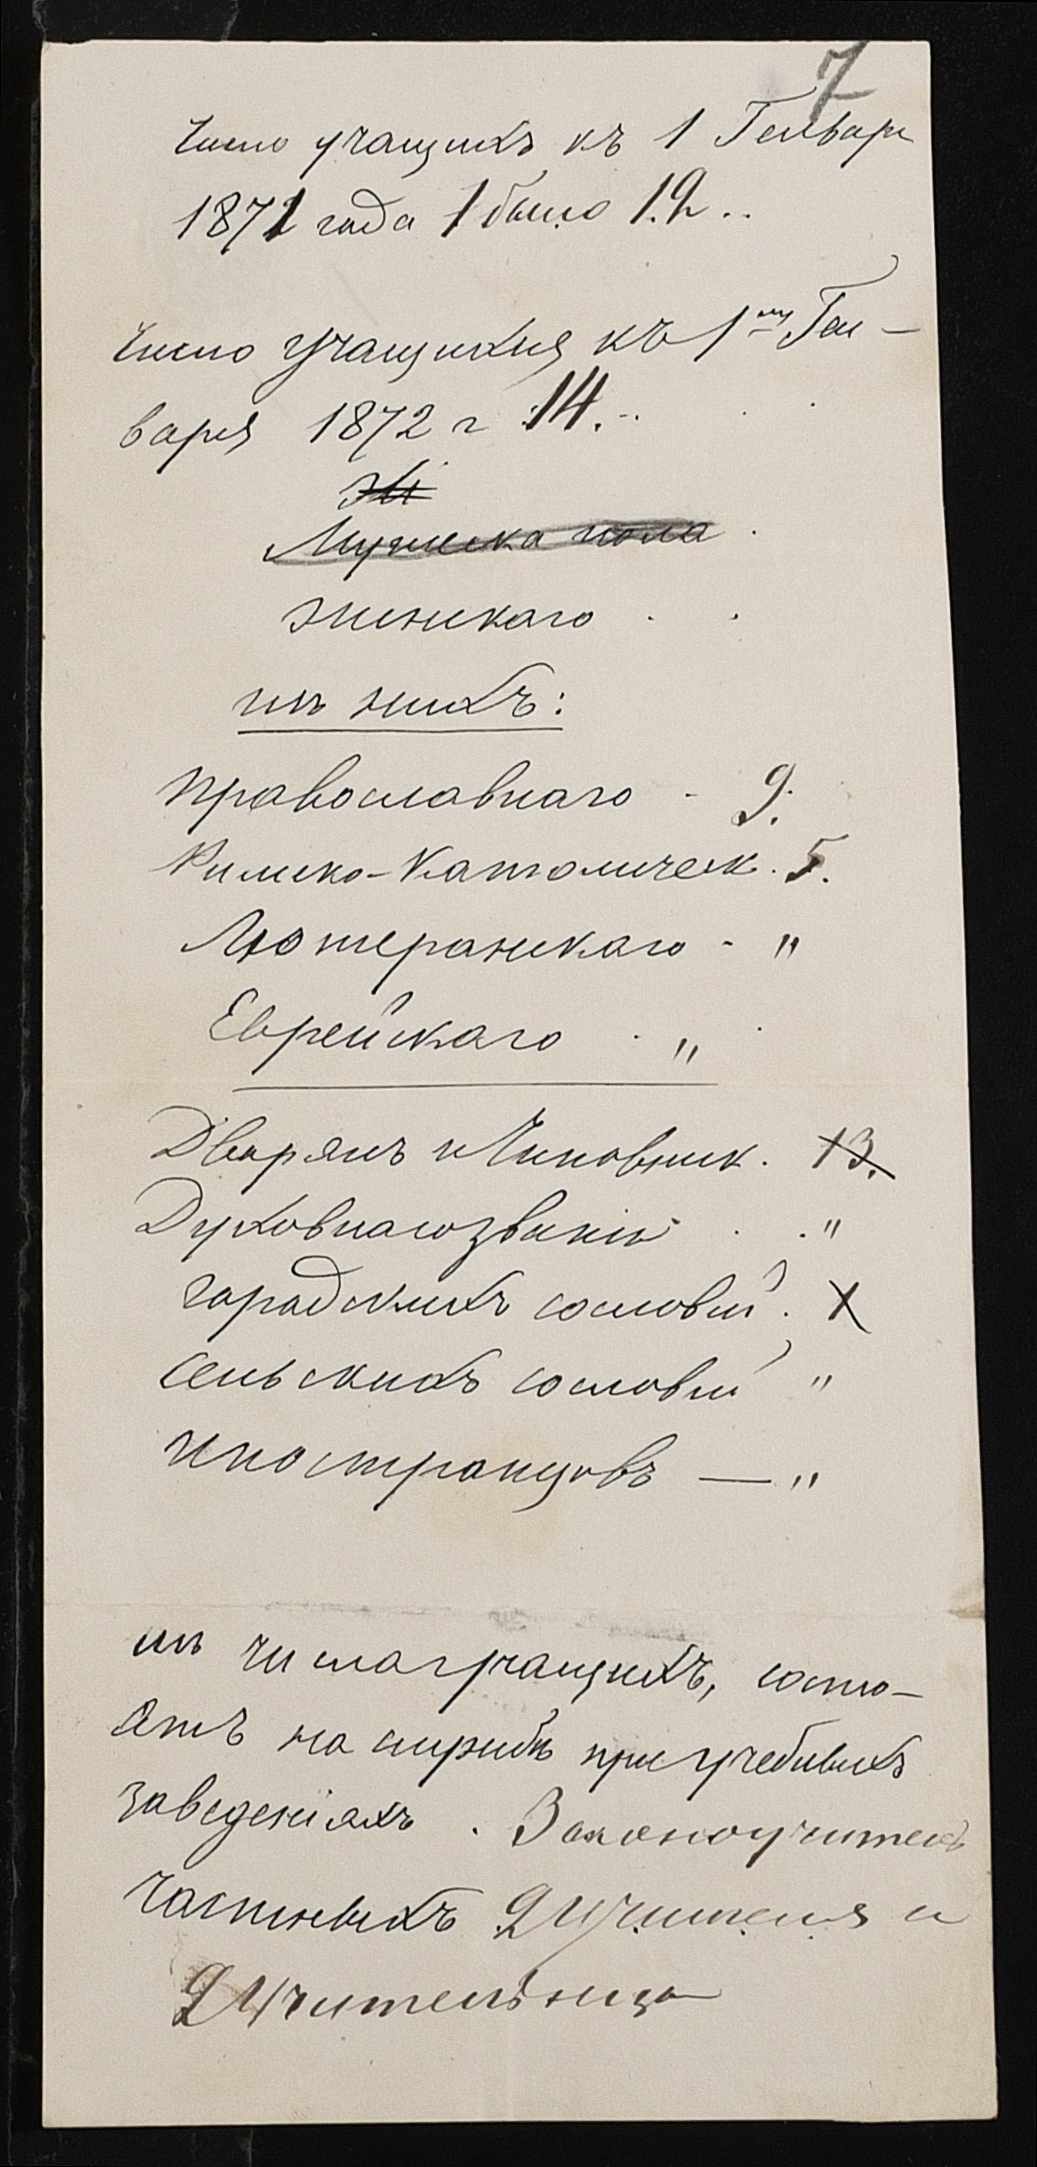 7
Число учащихъ къ 1 Генваря
1871 года было 12..
Число учащихся къ 1му Ген-
варя 1872 г 14.
Мужеска пола
женскаго
изъ нихъ:
Православнаго - 9.
Римско-Католическ. 5.
Лютеранскаго - "
Еврейскаго . "
Дворянъ и Чиновник. 13.
Духовнаго званія . "
городскихъ сословій . 1
сельскихъ сословій "
иностранцовъ — "
изъ числа учащихъ, состо-
ятъ на службѣ при учебныхъ
заведеніяхъ . Законоучитель
частныхъ 2 Учителя и
2 Учительницы